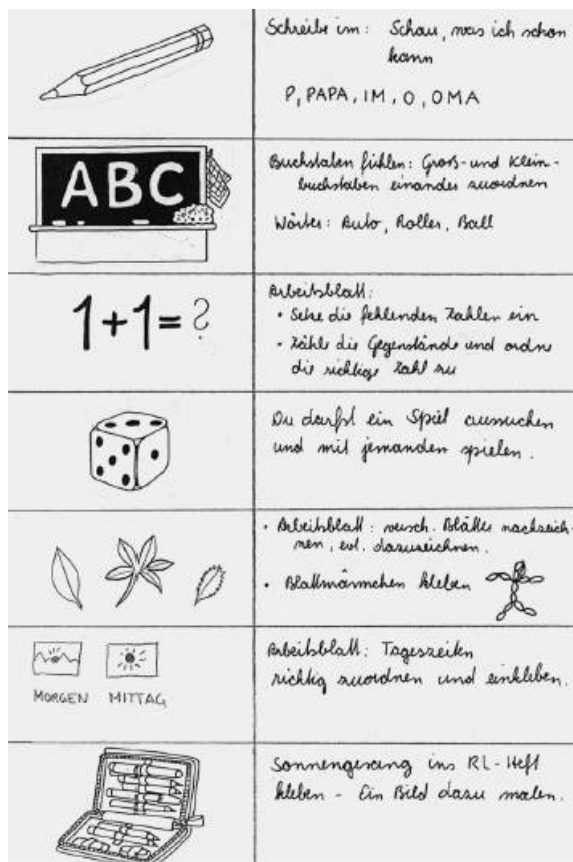 Schreibe im: Schau, was ich schon
kann
P, PAPA, IM, O, OMA
ABC
Buchstaben fühlen: Groß- und Klein-
buchstaben einander zuordnen
Wörter: Auto, Roller, Ball
1+1=?
Arbeitsblatt:
• Setze die fehlenden Zahlen ein
• Zähle die Gegenstände und ordne
die richtige Zahl zu
Du darfst ein Spiel aussuchen
und mit jemanden spielen.
• Arbeitsblatt: versch. Blätter nachzeich-
nen, evt. dazuzeichnen.
• Blattmännchen kleben
MORGEN MITTAG
Arbeitsblatt: Tageszeiten
richtig zuordnen und einkleben.
Sonnengesang ins RL-Heft
kleben - Ein Bild dazu malen.